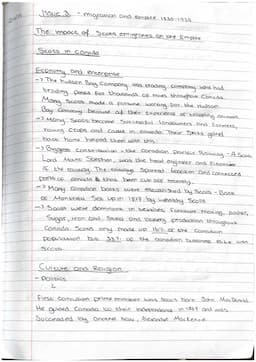 Issue 3 - migration and empire 1830-1939
The impact of Scots emigrants on the Empire
Scots in Canada
Economy and enterprise
→ The Hudson Bay Company was trading company who had
trading posts for thousands of miles throughout Canada.
Many Scots made a fortune working for the Hudson
Bay Company because of their experience of
→ Many Scots became successful landowners and farmers,
raising crops and cattle in Canada. Their skills gained
back home helped them with this.
→ Biggest contribution - the Canadian Pacific Railway - A Scot
Lord Mount Stephen, was the head engineer and financier
of the railway. The railway spanned and connected
parts of Canada
→ Many Canadian banks were established by Scots - Bank
of Montreal set up in 1817 by wealthy Scots
→ Scots were dominant in textiles, furniture making, paper,
sugar, iron and steel and bakery production throughout
Canada. Scots only made up 15% of the Canadian
population but 33% of the Canadian business elite was
Scots
Culture and Religion
- Politics
First Canadian prime minister was Scots born John MacDonald.
He guided Canada to their independence in 1867 and was
succeeded by another Scot, Alexander Mackenzie